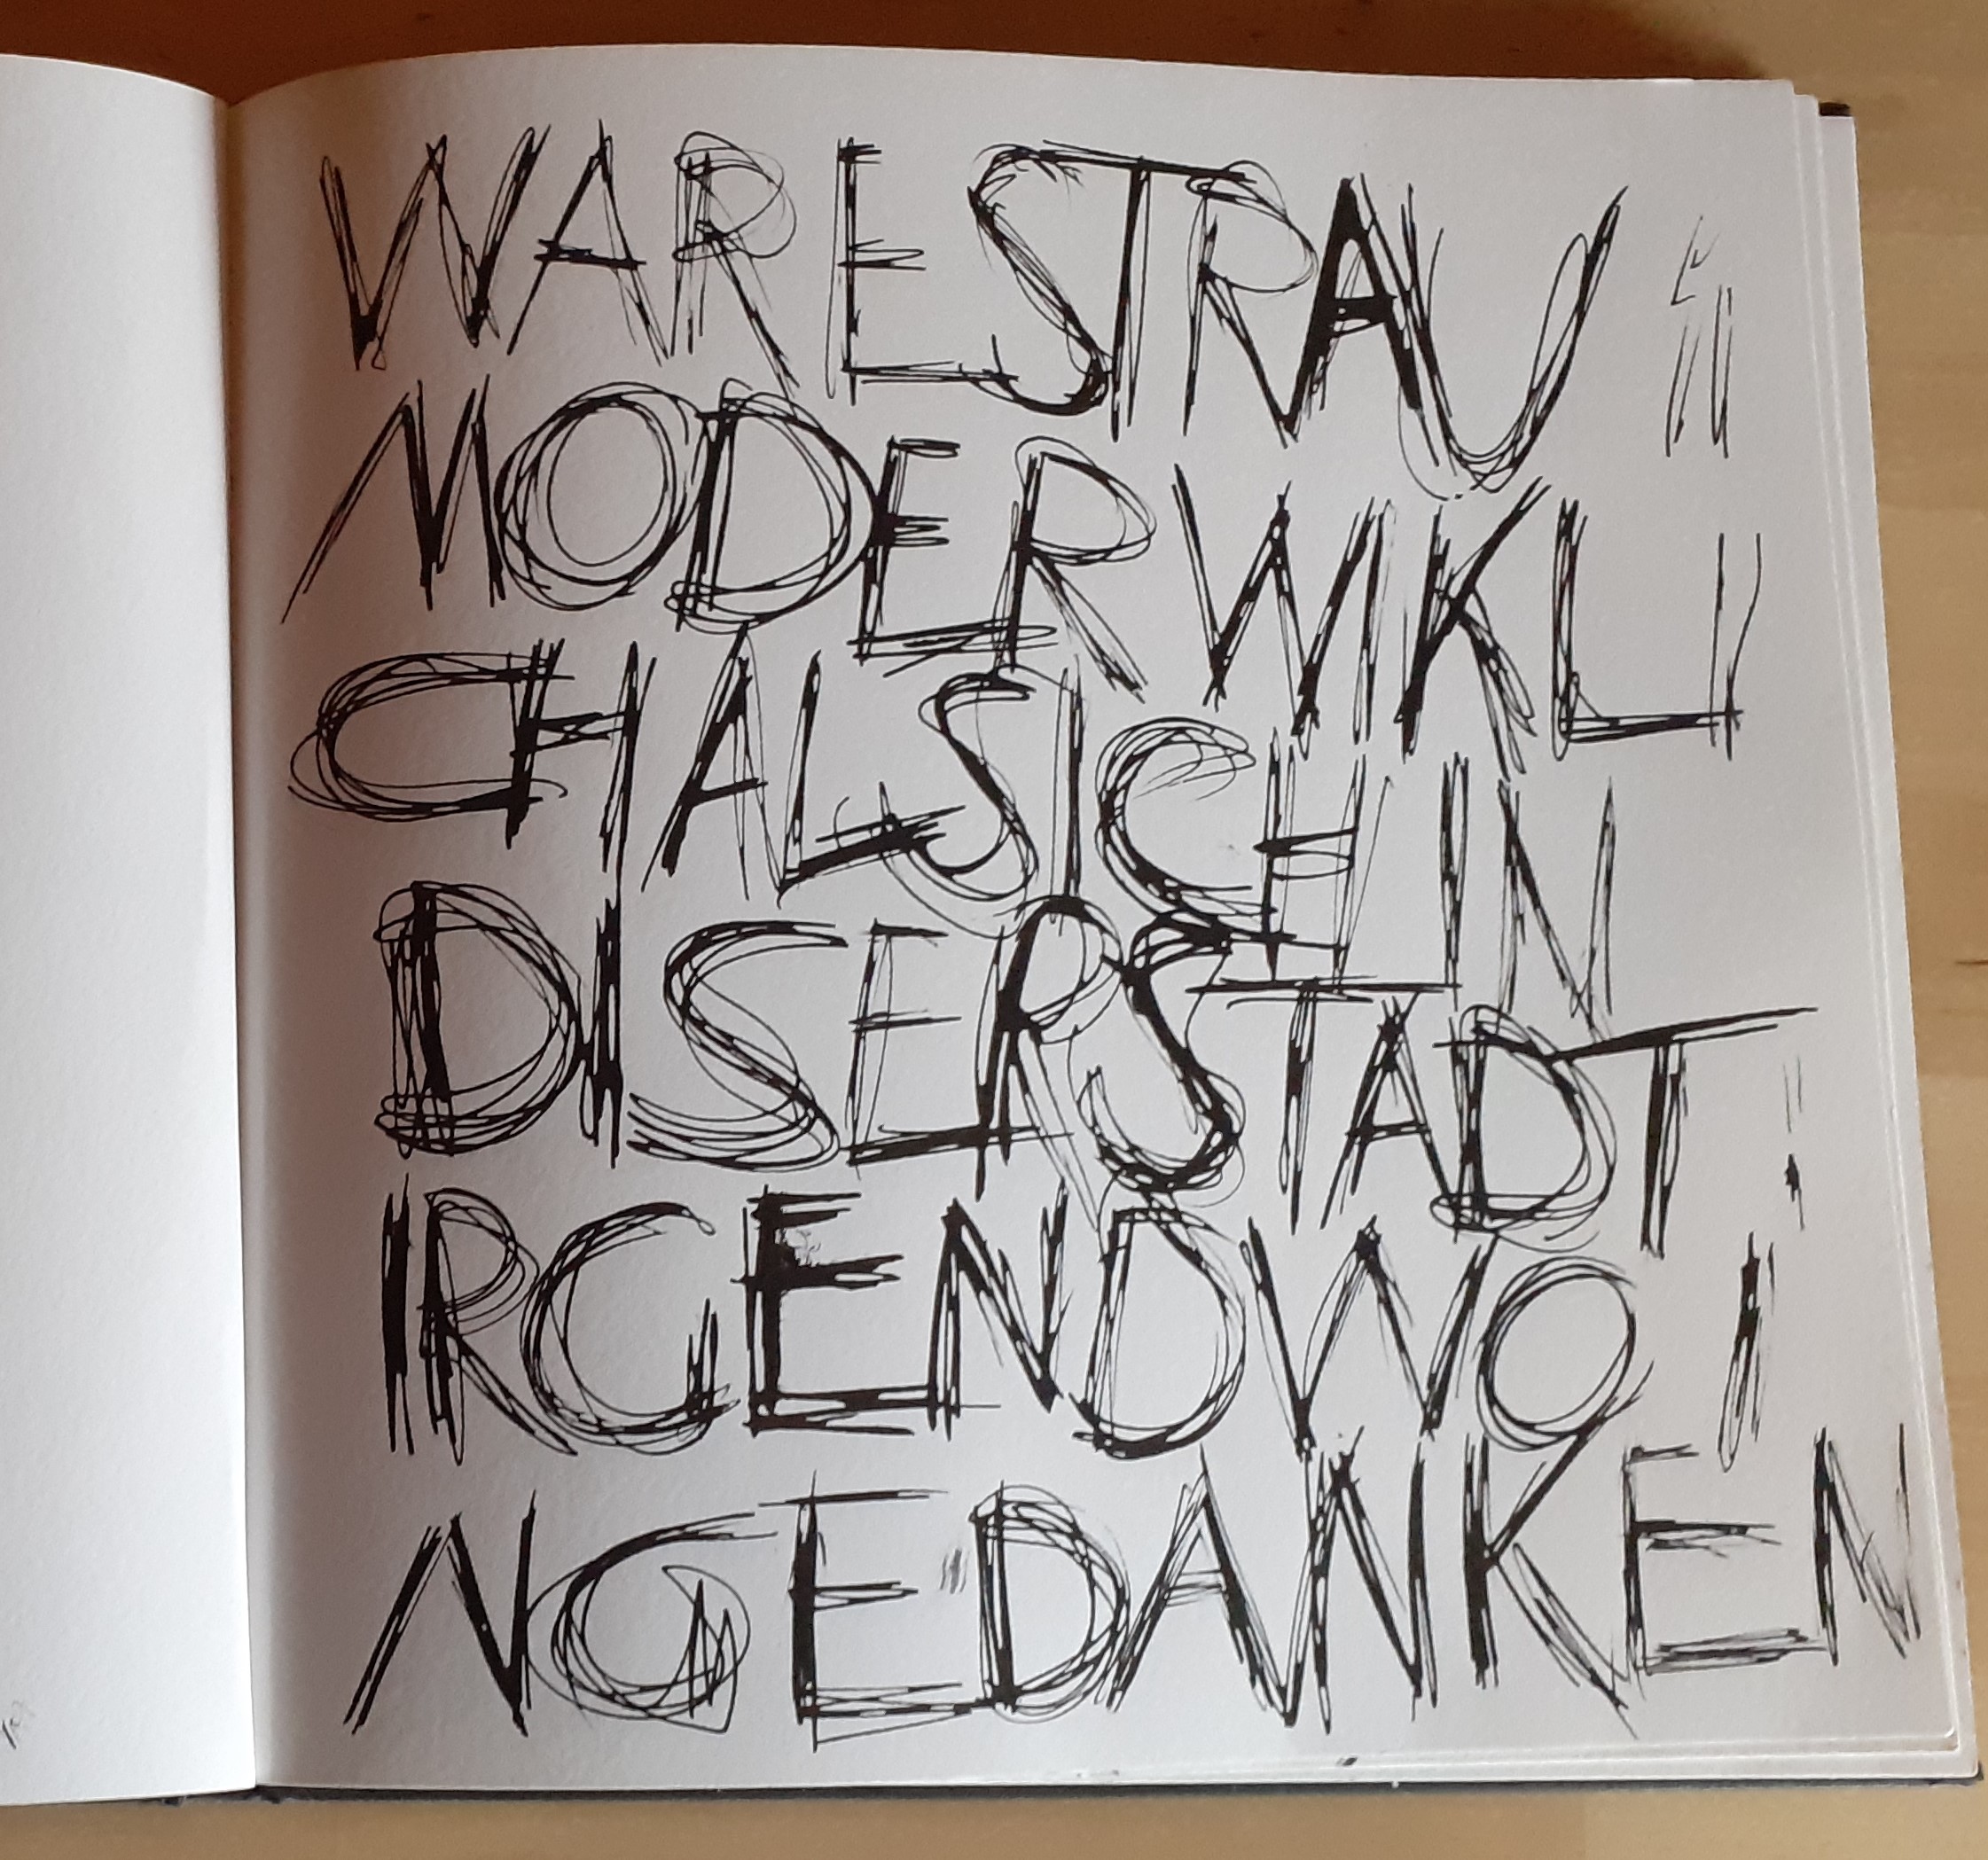 WAR ES TRAU
M ODER WIKLI
CH ALS ICH IN
DISER STADT
IRGENDWO I
N GEDANKEN